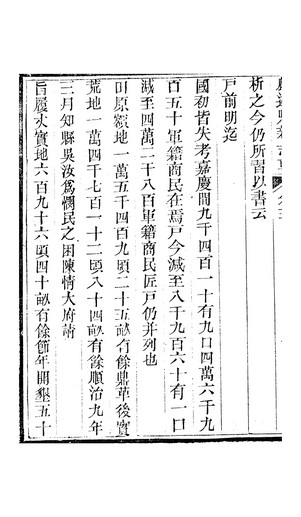 析之今仍所習以書云
戶前明迄
國初皆失考嘉慶間九千四百一十有九口四萬六千九
百五十軍籍商民在焉戶今減至八千九百六十有一口
減至四萬二千八百軍籍商民匠戶仍并列也
田原額地一萬五千四百九頃二十五畝有餘鼎革後實
荒地一萬四千七百一十二頃八十四畝有餘順治九年
三月知縣吳汝為憫民之困陳情大府請
旨履丈實地六百九十六頃四十畝有餘節年開墾五十